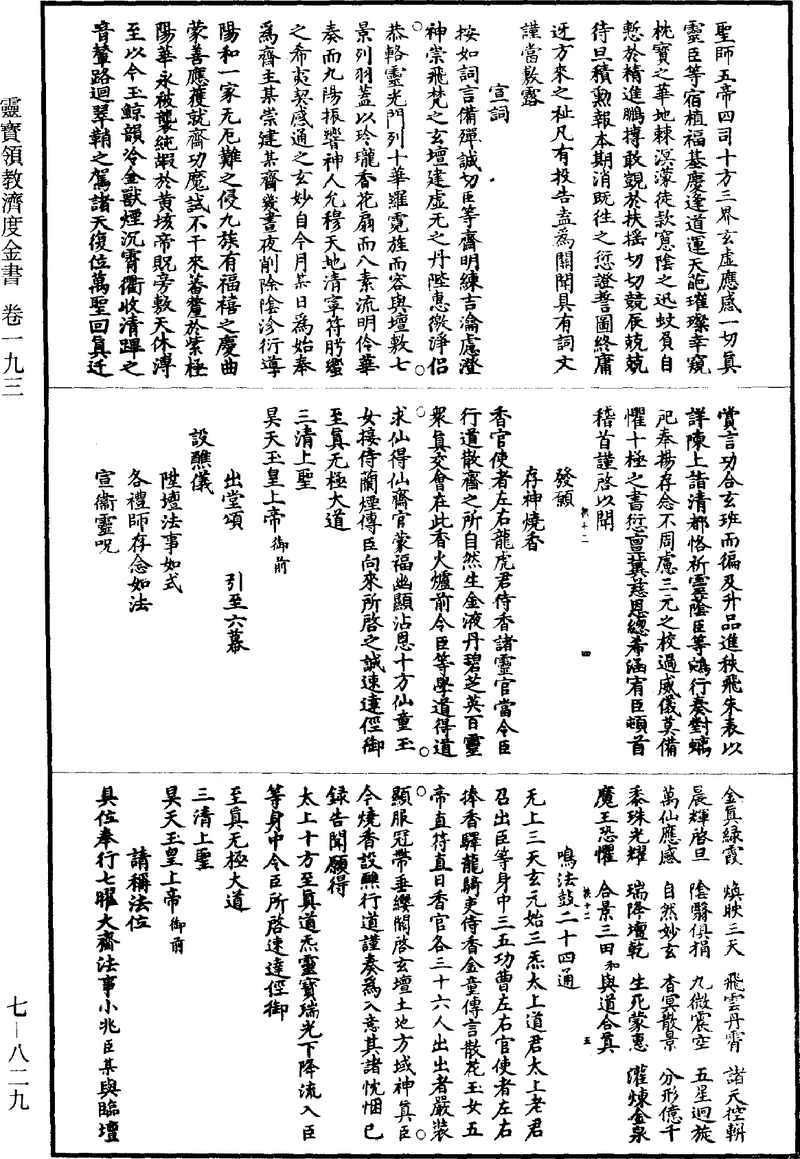 聖師五帝四司十方三界玄虛應感一切真
靈臣等宿植福基慶逢道運天葩璀璨幸窺
枕寶之華地棘溟濛徒款寬陰之迅蚊負自
慙於精進鵬摶敢覬於扶搖切切競辰兢兢
待旦積勲報本期消既往之愆證誓圖終庸
迓方來之祉凡有投告盍為關聞具有詞文
謹當敷露
宣詞
按如詞言備殫誠切臣等齋明練吉瀹處澄
神崇飛梵之玄壇建虛无之丹陛惠徼淨侶
恭輅靈光門列十華羅霓旌而容與壇敷七
景列羽蓋以玲瓏香花扇而八素流明伶華
奏而九陽振響神人允穆天地清寧符肹蠁
之希夷契感通之玄妙自今月某日為始奉
為齋主某崇建某齋幾晝夜削除陰沴衍導
陽和一家无厄難之侵九族有福禧之慶曲
蒙善應獲就齋功魔試不干來蕃釐於紫極
陽華永被襲純嘏於黃垓帝貺旁敷天休溥
至以今玉鯨韻冷金獸煙沉霄衢收清蹕之
音輦路迴翠鞘之駕諸天復位萬聖回真迁
賞言功合玄班而徧及升品進秩飛朱表以
詳陳上詣清都恪祈靈蔭臣等鵷行奏對螭
陛奉揚存念不周慮三元之校過威儀莫備
懼十極之書愆亶冀慈恩總希涵宥臣頓首
稽首謹啓以聞
發願
存神燒香
香官使者左右龍虎君侍香諸靈官當令臣
行道散齋之所自然生金液丹碧芝英百靈
衆真交會在此香火爐前令臣等學道得道
求仙得仙齋官蒙福幽顯沾恩十方仙童玉
女接侍蘭煙傳臣向來所啓之誠速達徑御
至真无極大道
三清上聖
昊天玉皇上帝御前
出堂頌　引至六幕
設醮儀
陞壇法事如式
各禮師存念如法
宣衞靈呪
金真綠霞　煥映三天　飛雲丹霄　諸天控軿
晨輝啓旦　陰翳俱捐　九微震空　五星迴旋
萬仙應感　自然妙玄　杳冥散景　分形億千
黍珠光耀　瑞降壇乾　生死蒙惠　灌煉金泉
魔王恐懼　合景三田　和與道合真
鳴法鼓二十四通
无上三天玄元始三炁太上道君太上老君
召出臣等身中三五功曹左右官使者左右
捧香驛龍騎吏侍香金童傳言散花玉女五
帝直符直日香官各三十六人出出者嚴裝
顯服冠帶垂纓關啓玄壇土地方域神真臣
今燒香設醮行道謹奏為入意其諸忱悃已
録告聞願得
太上十方至真道炁靈寶瑞光下降流入臣
等身中令臣所啓速達徑御
至真无極大道
三清上聖
昊天玉皇上帝御前
請稱法位
具位奉行七曜大齋法事小兆臣某與臨壇
靈寶領教濟度金書　卷一九三
七－八二九